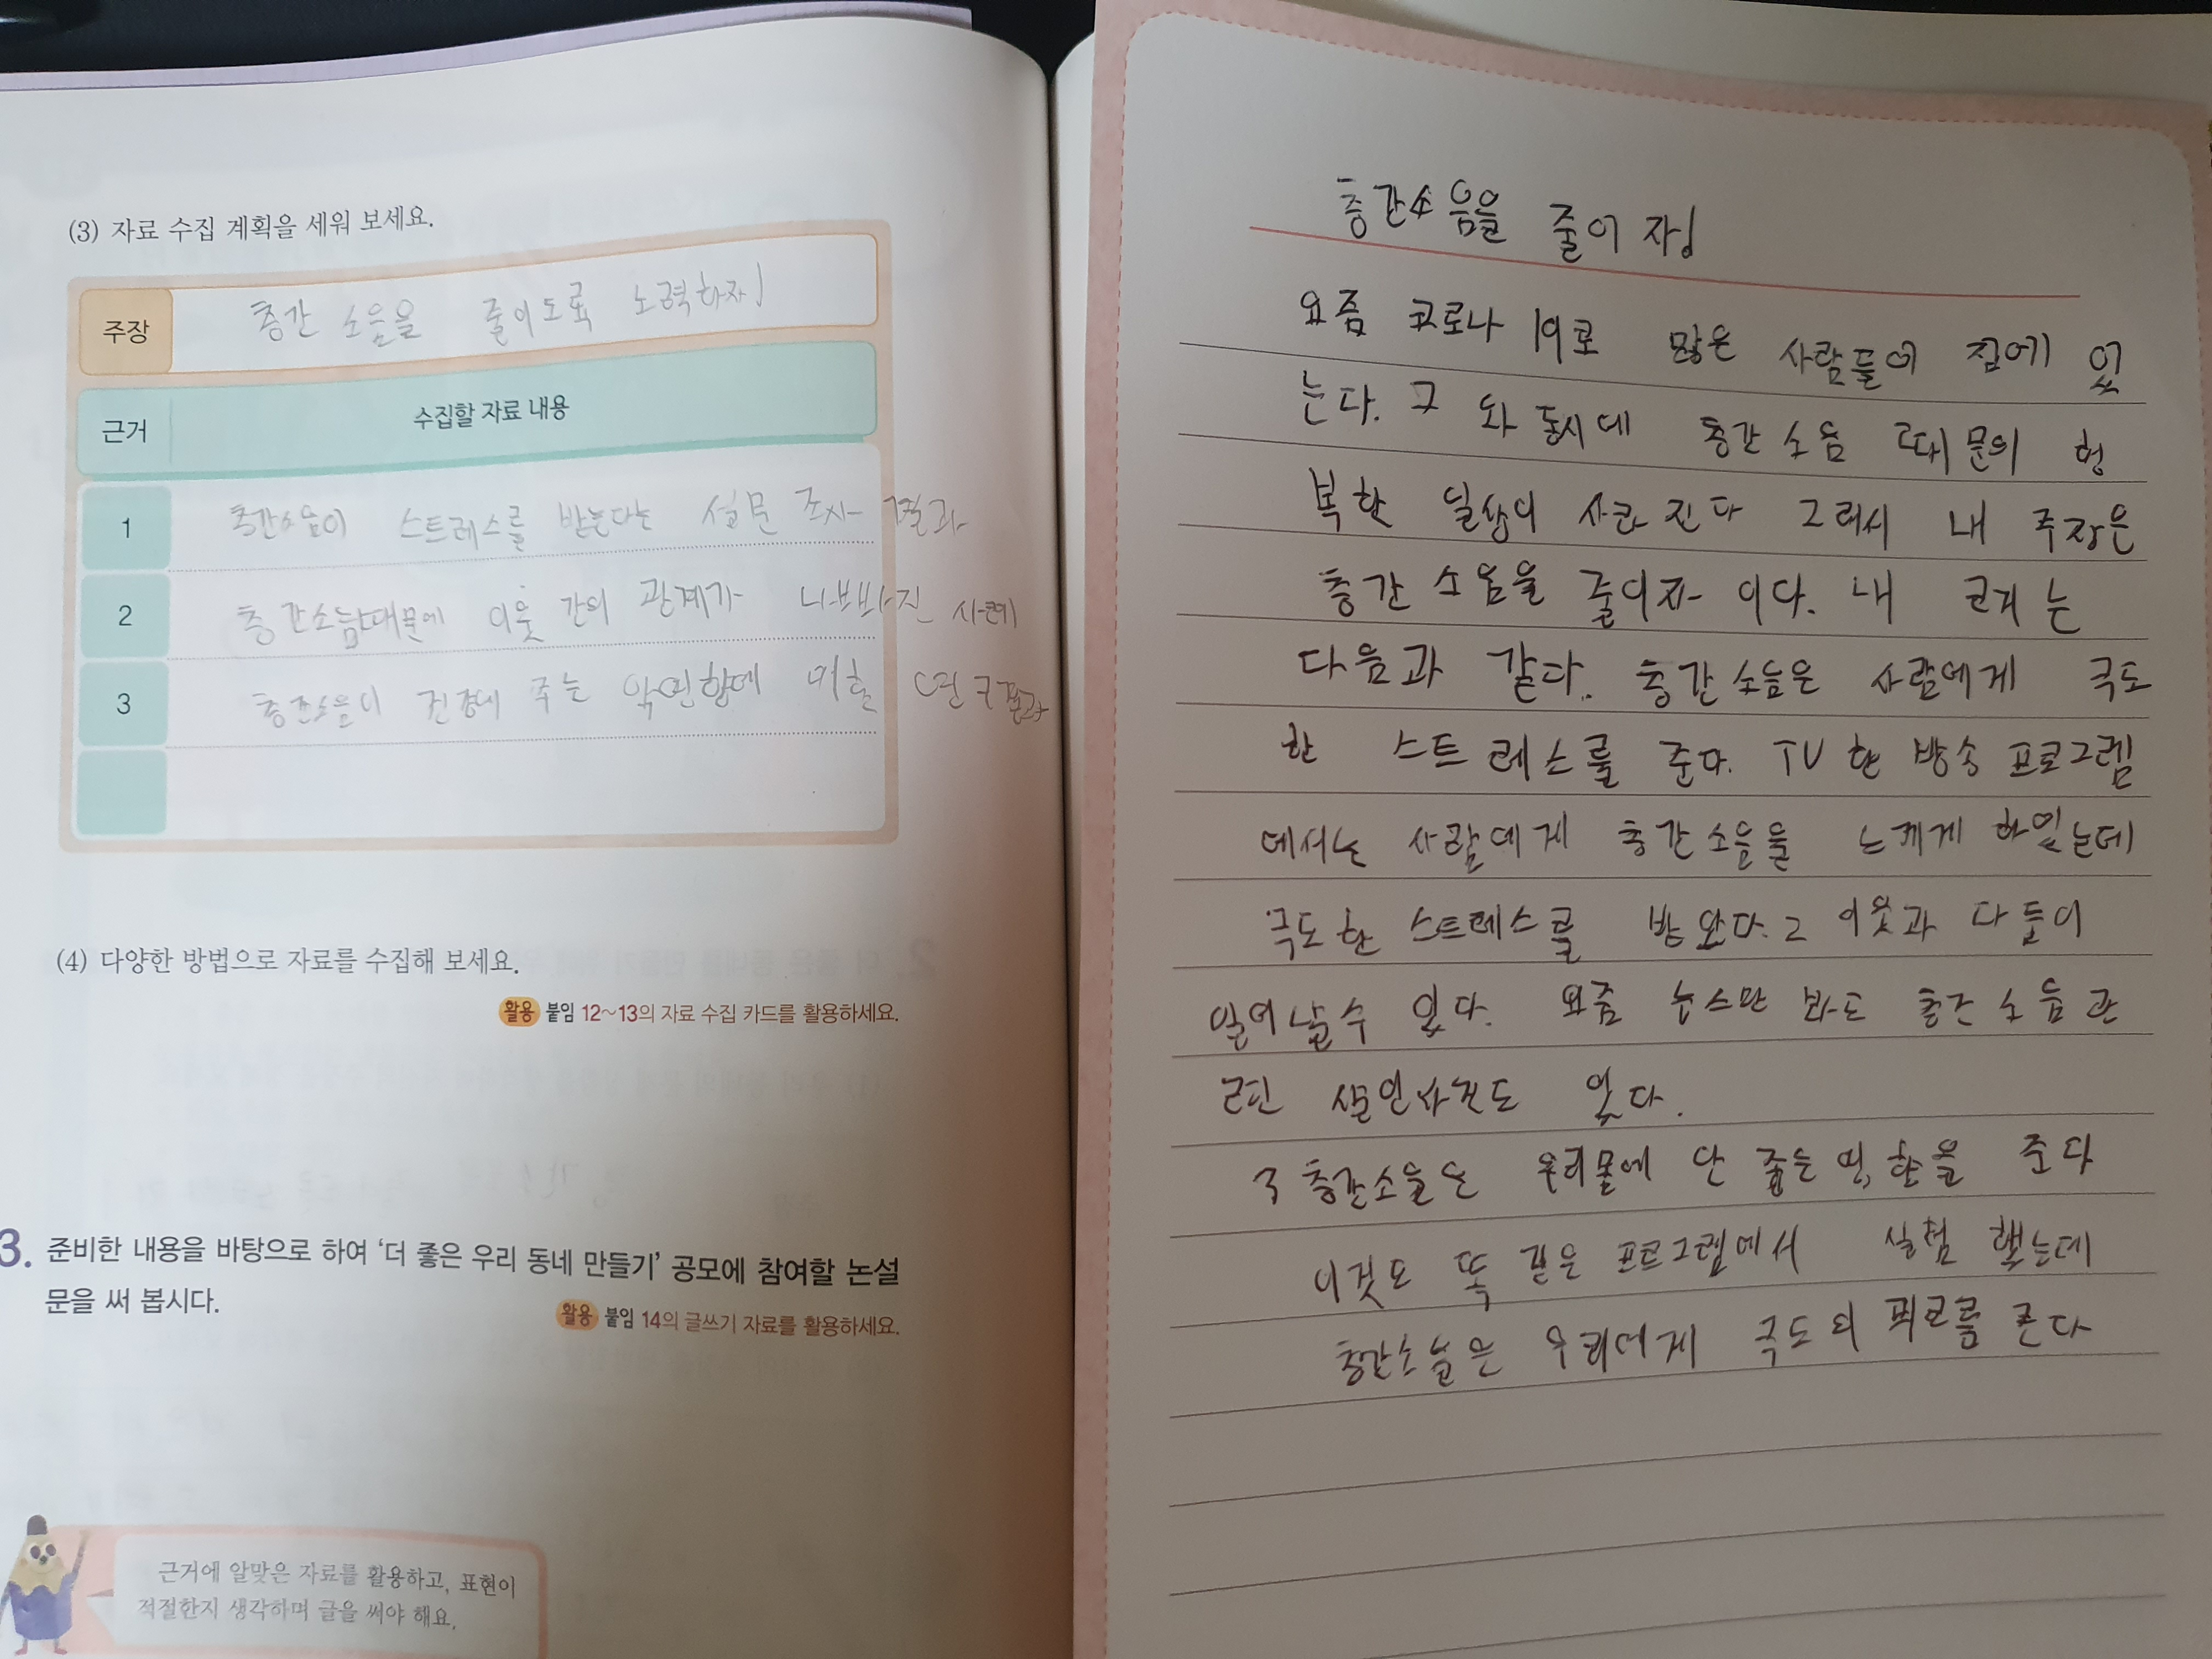 (3) 자료 수집 계획을 세워 보세요.
주장
층간 소음을 줄이도록 노력하자!
근거
수집할 자료 내용
1
층간소음이 스트레스를 받는다는 설문 조사 결과
2
층간소음때문에 이웃 간의 관계가 나빠진 사례
3
층간소음이 건강에 주는 악영향에 연구결과
(4) 다양한 방법으로 자료를 수집해 보세요.
활용 붙임 12~13의 자료 수집 카드를 활용하세요.
3. 준비한 내용을 바탕으로 하여 '더 좋은 우리 동네 만들기' 공모에 참여할 논설
문을 써 봅시다.
활용 붙임 14의 글쓰기 자료를 활용하세요.
근거에 알맞은 자료를 활용하고, 표현이
적절한지 생각하며 글을 써야 해요.
층간소음을 줄이자!
요즘 코로나 19로 많은 사람들이 집에 있
는다. 그 와 동시데 층간 소음 때문의 헝
복한 일상이 사라진다 그래서 내 주장은
층간 소음을 줄이자 이다. 내 근거는
다음과 같다. 층간소음은 사람에게 극도
한 스트레스를 준다. TV 한 방송 프로그렘
에서는 사람에게 층간소음을 느께게 하였는데
극도한 스트레스를 받았다. 2 이웃과 다툼이
일어날수 있다. 요즘 뉴스만 봐도 층간 소음 관
련 살인사건도 있다.
3 층간소음은 우리몸에 안 좋은 영향을 준다
이것도 똑같은 프로그렘에서 실험 했는데
층간소음은 우리에게 극도의 피로를 준다